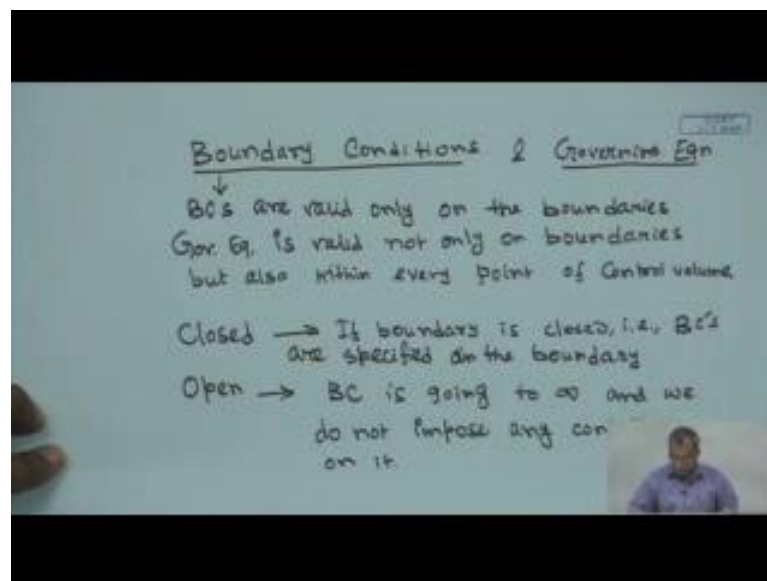 Boundary Conditions & Governing Eqn
BCs are valid only on the boundaries
Gov. Eq. is valid not only on boundaries
but also within every point of Control volume
Closed → If boundary is closed, i.e., BC's
are specified on the boundary
Open → BC is going to ∞ and we
do not impose any con
on it.